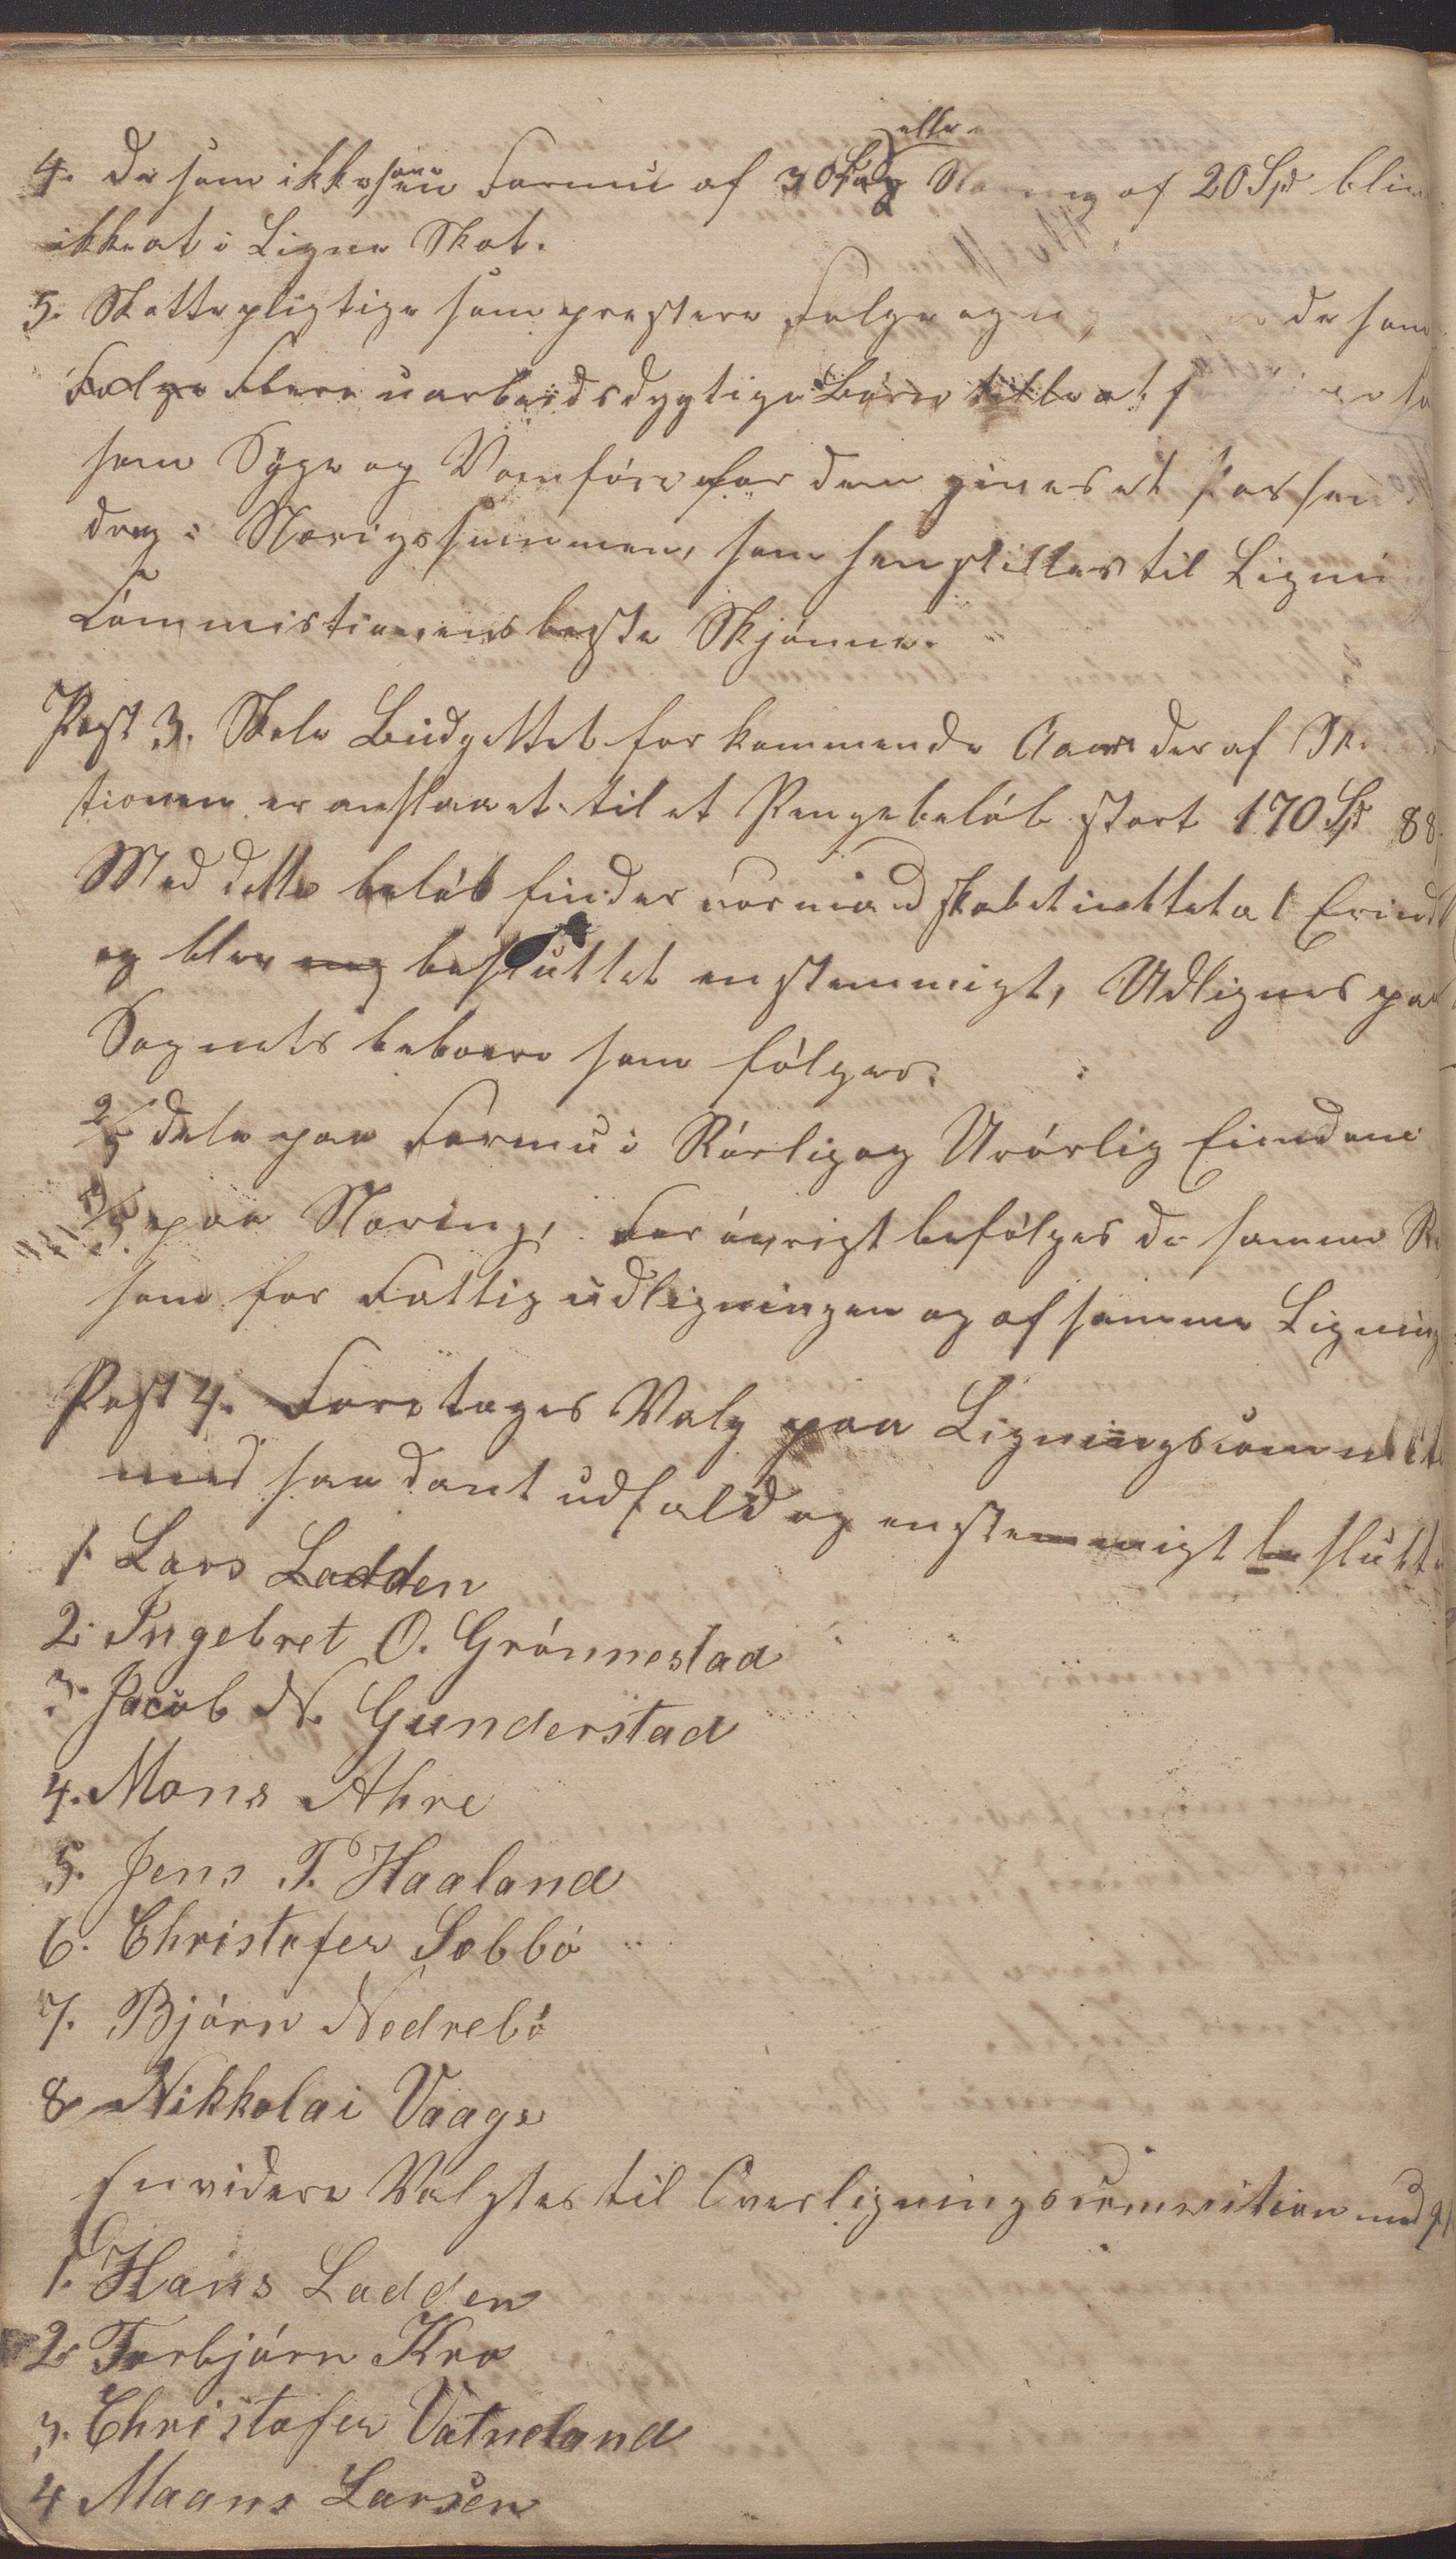 eller
4. De som ikke have en Formu af 30 Spd Næring af 20 Spd bliv
ikke at i Ligne Skat.
5. Skattepligtige som præstere Følge og de som
Følge Flere uarbeidsdygtige Børn
som Syge og Vanføre for dem gives et Passen
drag i Næringssummen, som henstilles til Ligni
Commistionens beste Skjønne.
Post 3. Skole Budgettet for kommende Aar der af
tionen er anslaaet til et Pengebeløb stort 170 Spd 88
Med dette beløb finder Formandskabet intet at Erind
og blev eng besluttet enstemmigt, Udlignes paa
Sognets beboere som følger.
2/5 dele paa Formu i Rørlig og Urørlig Eiendom
3/5 paa Næring, For øvrigt befølges de samme R
som for Fattig udligningen og af samme Ligning
Post 4. Foretages Valg paa Ligningscommit
med saadant udfald og enstemmigt beslutte
1. Lars Ladden
2. Ingebret O. Grónnestad
3. Jacob N. Gunderstad
4. Mons Ahre
5. Jens T. Haaland
6. Christofer Sebbó
7. Bjórn Nedrebó
8 Nikkolai Vaage
Envidere Valgtes til Overligningscommition med
1. Hans Ladden
2. Torbjórn Kro
3. Christofer Vatneland
4 Maans Larsen